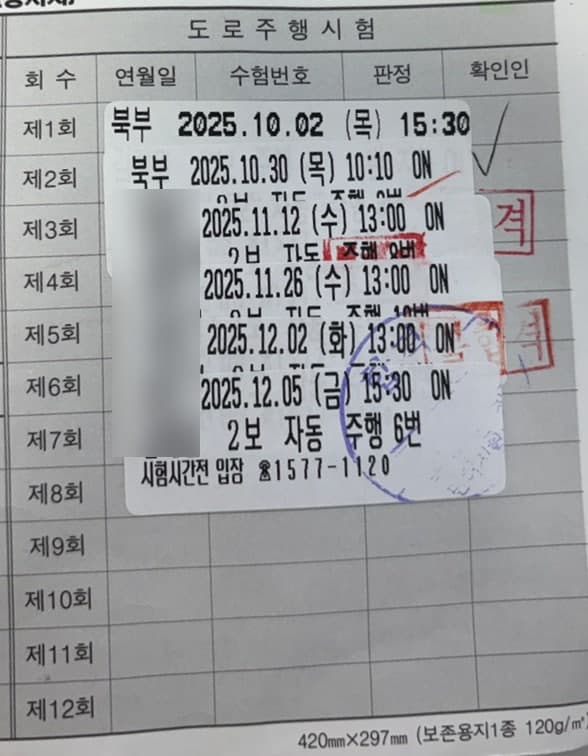 도로주행시험
회 수 연월일 수험번호 판정 확인인
제1회 북부 2025.10.02 (목) 15:30
제2회 북부 2025.10.30 (목) 10:10 ON
제3회 2025.11.12 (수) 13:00 ON 격
2보 자동 주행
제4회 2025.11.26 (수) 13:00 ON
제5회 2025.12.02 (화) 13:00 ON 격
제6회 2025.12.05 (금) 15:30 ON
제7회 2보 자동 주행 6번
시험시간전 입장 ☎1577-1120
제8회
제9회
제10회
제11회
제12회
420㎜×297㎜ (보존용지1종 120g/㎡